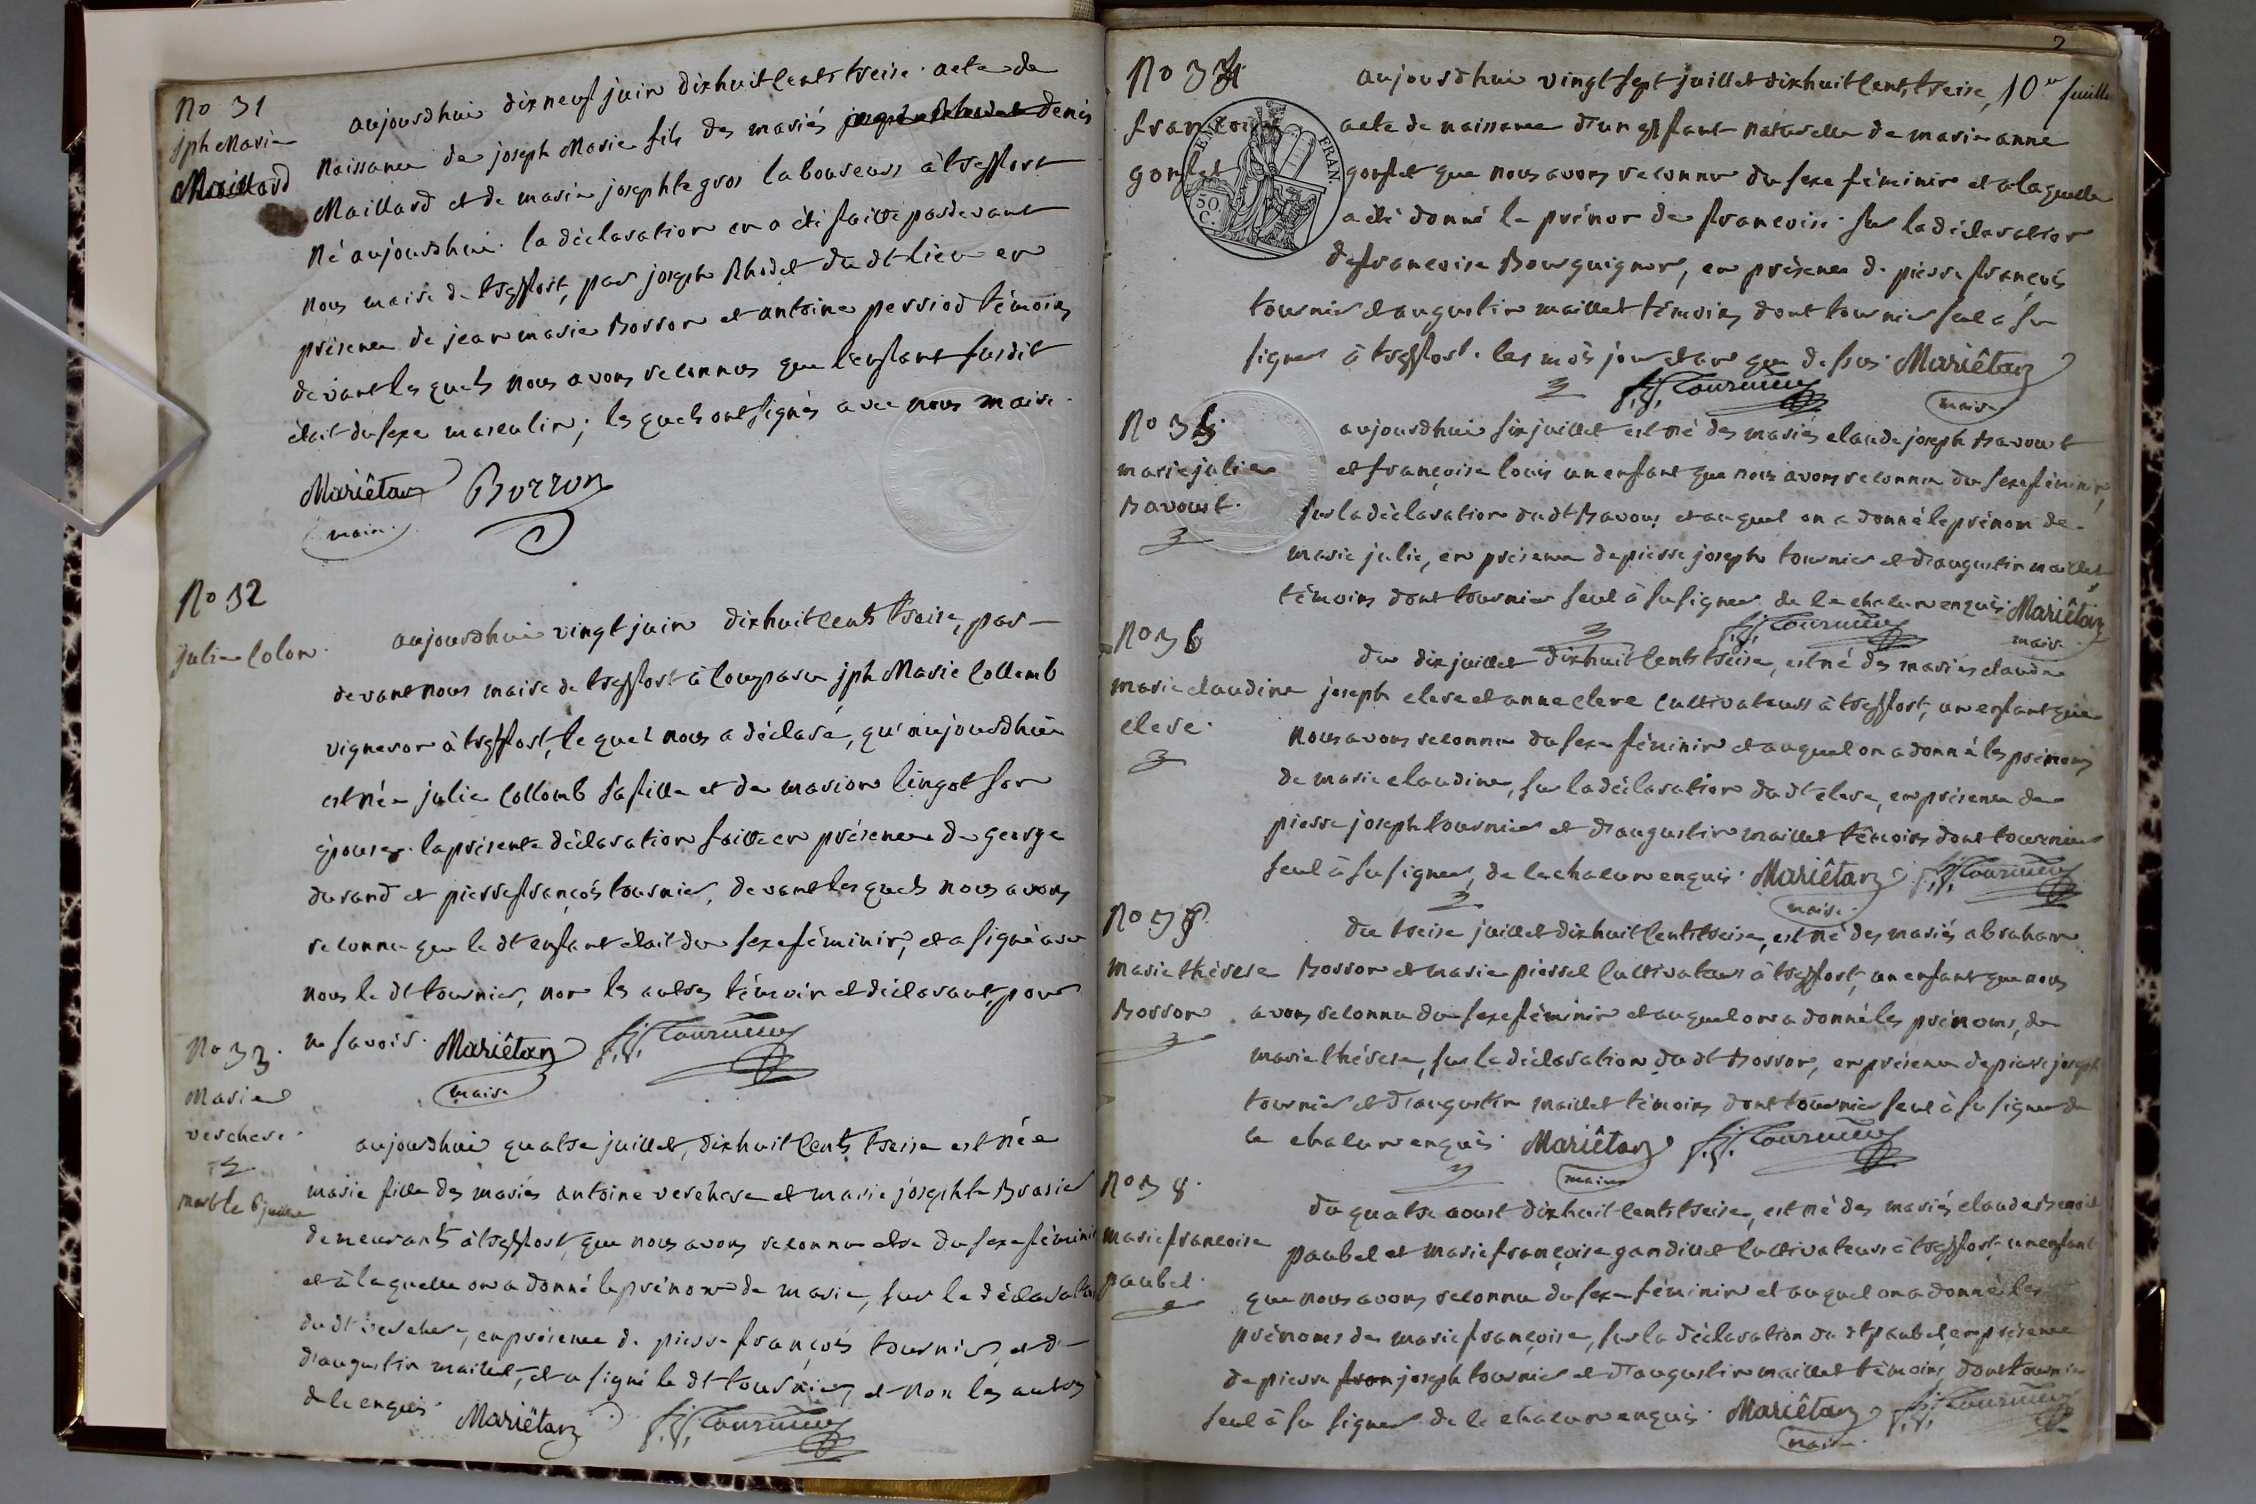 No 31
jph Marie
Maillard
aujourdhui dix neuf juin dixhuit cents treise. acte de
naissance de joseph Marie fils des mariés joseph Rhodet denis
Maillard et de marie josephte gros laboureurs à treffort
né aujourdhui. la déclaration en a été faitte pardevant
nous maire de treffort, par joseph Rhodet du dt lieu en
présence de jean marie Borron et antoine perriod témoins
devant les quels nous avons reconnus que l'enfant susdit
était du sexe masculin; les quels ont signés avec nous maire.
Mariêtan Borron
maire.
No 32
julie Colon.
aujourdhui vingt juin dixhuit cents treise, par-
devant nous maire de treffort à comparu jph Marie Collomb
vigneron à treffort, le quel nous a déclaré, qu'aujourdhui
est née julie Collomb sa fille et de marion lingot son
épouse. la présente déclaration faitte en présence de george
durand et pierre françois tournier, devant les quels nous avons
reconnu que le dt enfant était du sexe féminin, et a signé avec
nous le dt tournier, non les autres témoin et déclarant, pour
ne savoir. Mariêtan p. f. Tournier
maire
No 33.
Marie
verchere.
morte le 6 juillet
aujourdhui quatre juillet, dixhuit cents treise est née
marie fille des mariés antoine verchere et marie josephte Brasier
demeurants à treffort, que nous avons reconnu etre du sexe féminin
et à laquelle on a donné le prénom de marie, sur la déclaration
du dt verchere, en présence de pierre françois tournier, et d-
d'augustin maillet, et a signé le dt tournier et non les autres
de ce enquis. Mariêtan p. f. Tournier
2
10e feuille
No 34.
françoise
gonfet
EMP. FRAN.
50
C.
aujourdhui vingt sept juillet dixhuit cents treise,
acte de naissance d'un enfant naturelle de marie anne
gonfet que nous avons reconnu du sexe féminin et a laquelle
a été donné le prénon de françoise. sur la déclaration
de francoise Bourguignon, en présence de pierre françois
tournier et augustin maillet témoins dont tournier seul a su
signer à treffort. les mois jour et an que dessus. Mariêtan
p. f. Tournier maire
No 35.
marie julie
Bavoust.
aujourdhui six juillet est né des mariés claude joseph Bavoust
et françoise louis un enfant que nous avons reconnu du sexe féminin,
sur la déclaration du dt Bavous et auquel on a donné le prénom de
marie julie, en présence de pierre joseph tournier et d'augustin maillet
témoins dont tournier seul à su signer de ce chacun enquis. Mariêtan
p. f. Tournier maire.
No 36
marie claudine
clere.
du dix juillet dixhuit cents treise, est né des mariés claude
joseph clere et anne clere cultivateurs à treffort, un enfant que
nous avons reconnu du sexe féminin et auquel on a donné les prénoms
de marie claudine, sur la déclaration du dt clere, en présence de
pierre joseph tournier et d'augustin maillet témoins dont tournier
seul à su signer, de ce chacun enquis. Mariêtan p. f. Tournier
maire.
No 37.
marie thérese
Borron
du treise juillet dixhuit cents treise, est né des mariés abraham
Borron et marie pierrel cultivateurs à treffort, un enfant que nous
avons reconnu du sexe féminin et auquel on a donné les prénoms, de
marie thérese, sur la déclaration du dt Borron, en présence de pierre joseph
tournier et d'augustin maillet témoins dont tournier seul à su signer de
ce chacun enquis. Mariêtan p. f. Tournier
maire
No 38.
marie francoise
paubel.
du quatre aoust dixhuit cents treise, est né des mariés claude Benoit
paubel et marie françoise gandillet cultivateurs à treffort, un enfant
que nous avons reconnu du sexe féminin et auquel on a donné les
prénoms de marie françoise, sur la déclaration du dt paubel, en présence
de pierre fran joseph tournier et d'augustin maillet témoins, dont tournier
seul à su signer de ce chacun enquis. Mariêtan p. f. Tournier
maire.